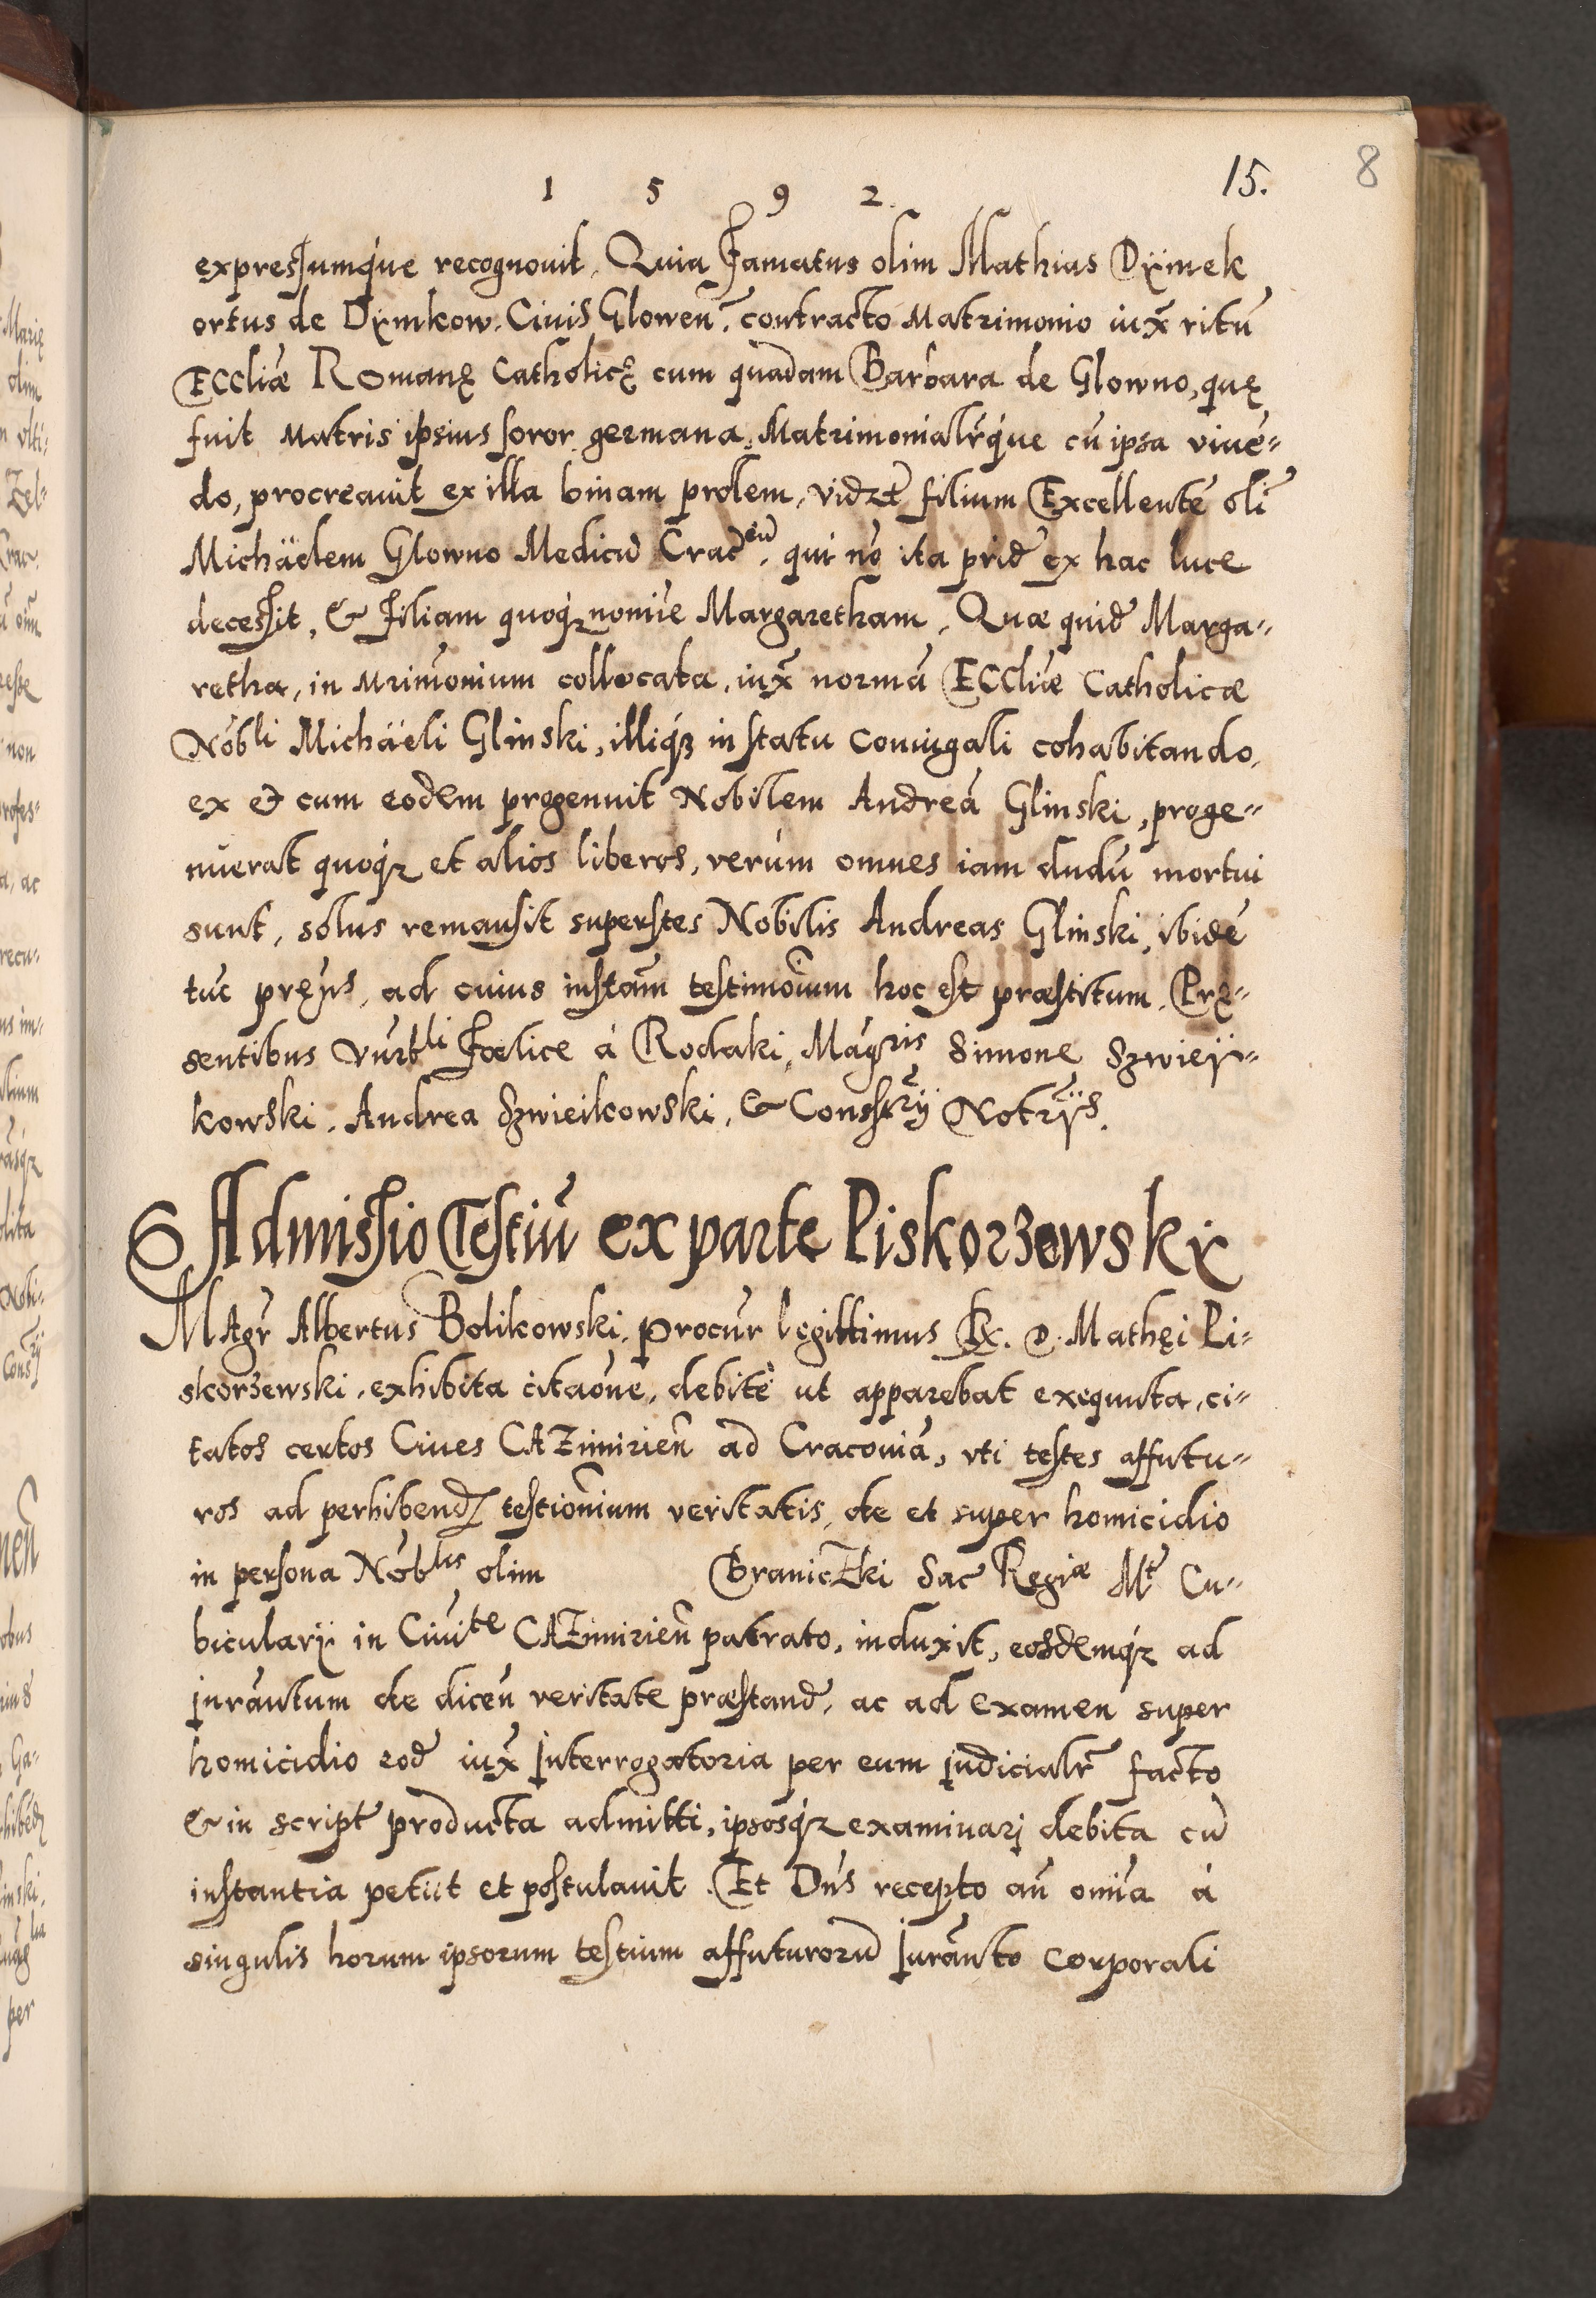 1 5 9 2. 15. 8
expressumq́ue recognouit. Quia Famatus olim Mathias Dÿmek
ortus de Dÿmkow. Ciuis Glowen̄. contracto Matrimonio iux̄ ritū
Eccliæ Romanę Catholicę cum quadam Barbara de Glowno, quę
fuit Matris ipsius soror germana. Matrimonialr̄q́ue cū ipsa viuē-
do, procreauit ex illa binam prolem, vidzt filium Excellentē oli͂
Michäelem Glowno Medicū Crac̄en̄, qui nō ita prid̄ ex hac luce
decessit, & Filiam quoq́ꝫ nomi̅e Margaretham. Quæ quid̄ Marga-
retha, in Mrimōnium collocata, iux̄ normā Eccliæ Catholicæ
Nōbli Michäeli Glinski, illiq́ꝫ in statu coniugali cohabitando,
ex & cum eodem progenuit Nobilem Andreā Glinski, proge-
nuerat quoq́ꝫ et alios liberos, verùm omnes iam dudū mortui
sunt, solus remansit superstes Nobilis Andreas Glinski, ibidē
tūc pręn̄s, ad cuius instām testimōium hoc est præstitum. Prę-
sentibus Fœlice à Rodaki, Māgris Simone Szwieÿ-
kowski. Andrea Szwieikowski, & Consst̄rij Not̄rijs.
Admissio Testiū ex parte Piskorzewskÿ
Magr̄ Albertus Bolikowski. Procūr legittimus Rx. D. Mathęi Pi-
skorzewski, exhibita citaōne, debitè ut apparebat exequuta, ci-
tatos certos Ciues CAZimirien̄ ad Cracouiā, vti testes affutu-
ros ad perhibendꝫ testiōnium veritatis, de et super homicidio
in persona Nōblis olim BranicZki Sac̄ Regiæ Mt̄ Cu-
bicularij in Ciuīte CAZimirien̄ patrato, induxit, eosdemq́ꝫ ad
jurāntum de dicen̄ veritate præstand̄, ac ad examen super
homicidio eod̄ iux̄ Interrogatoria per eum judicialr̄ facto
& in script̄ producta admitti, ipsosq́ꝫ examinarj debita cū
instantia petiit et postulauit. Et Dn̄s recepto an̄ omi̅a à
singulis horum ipsorum testium affuturorū Jurānto corporali